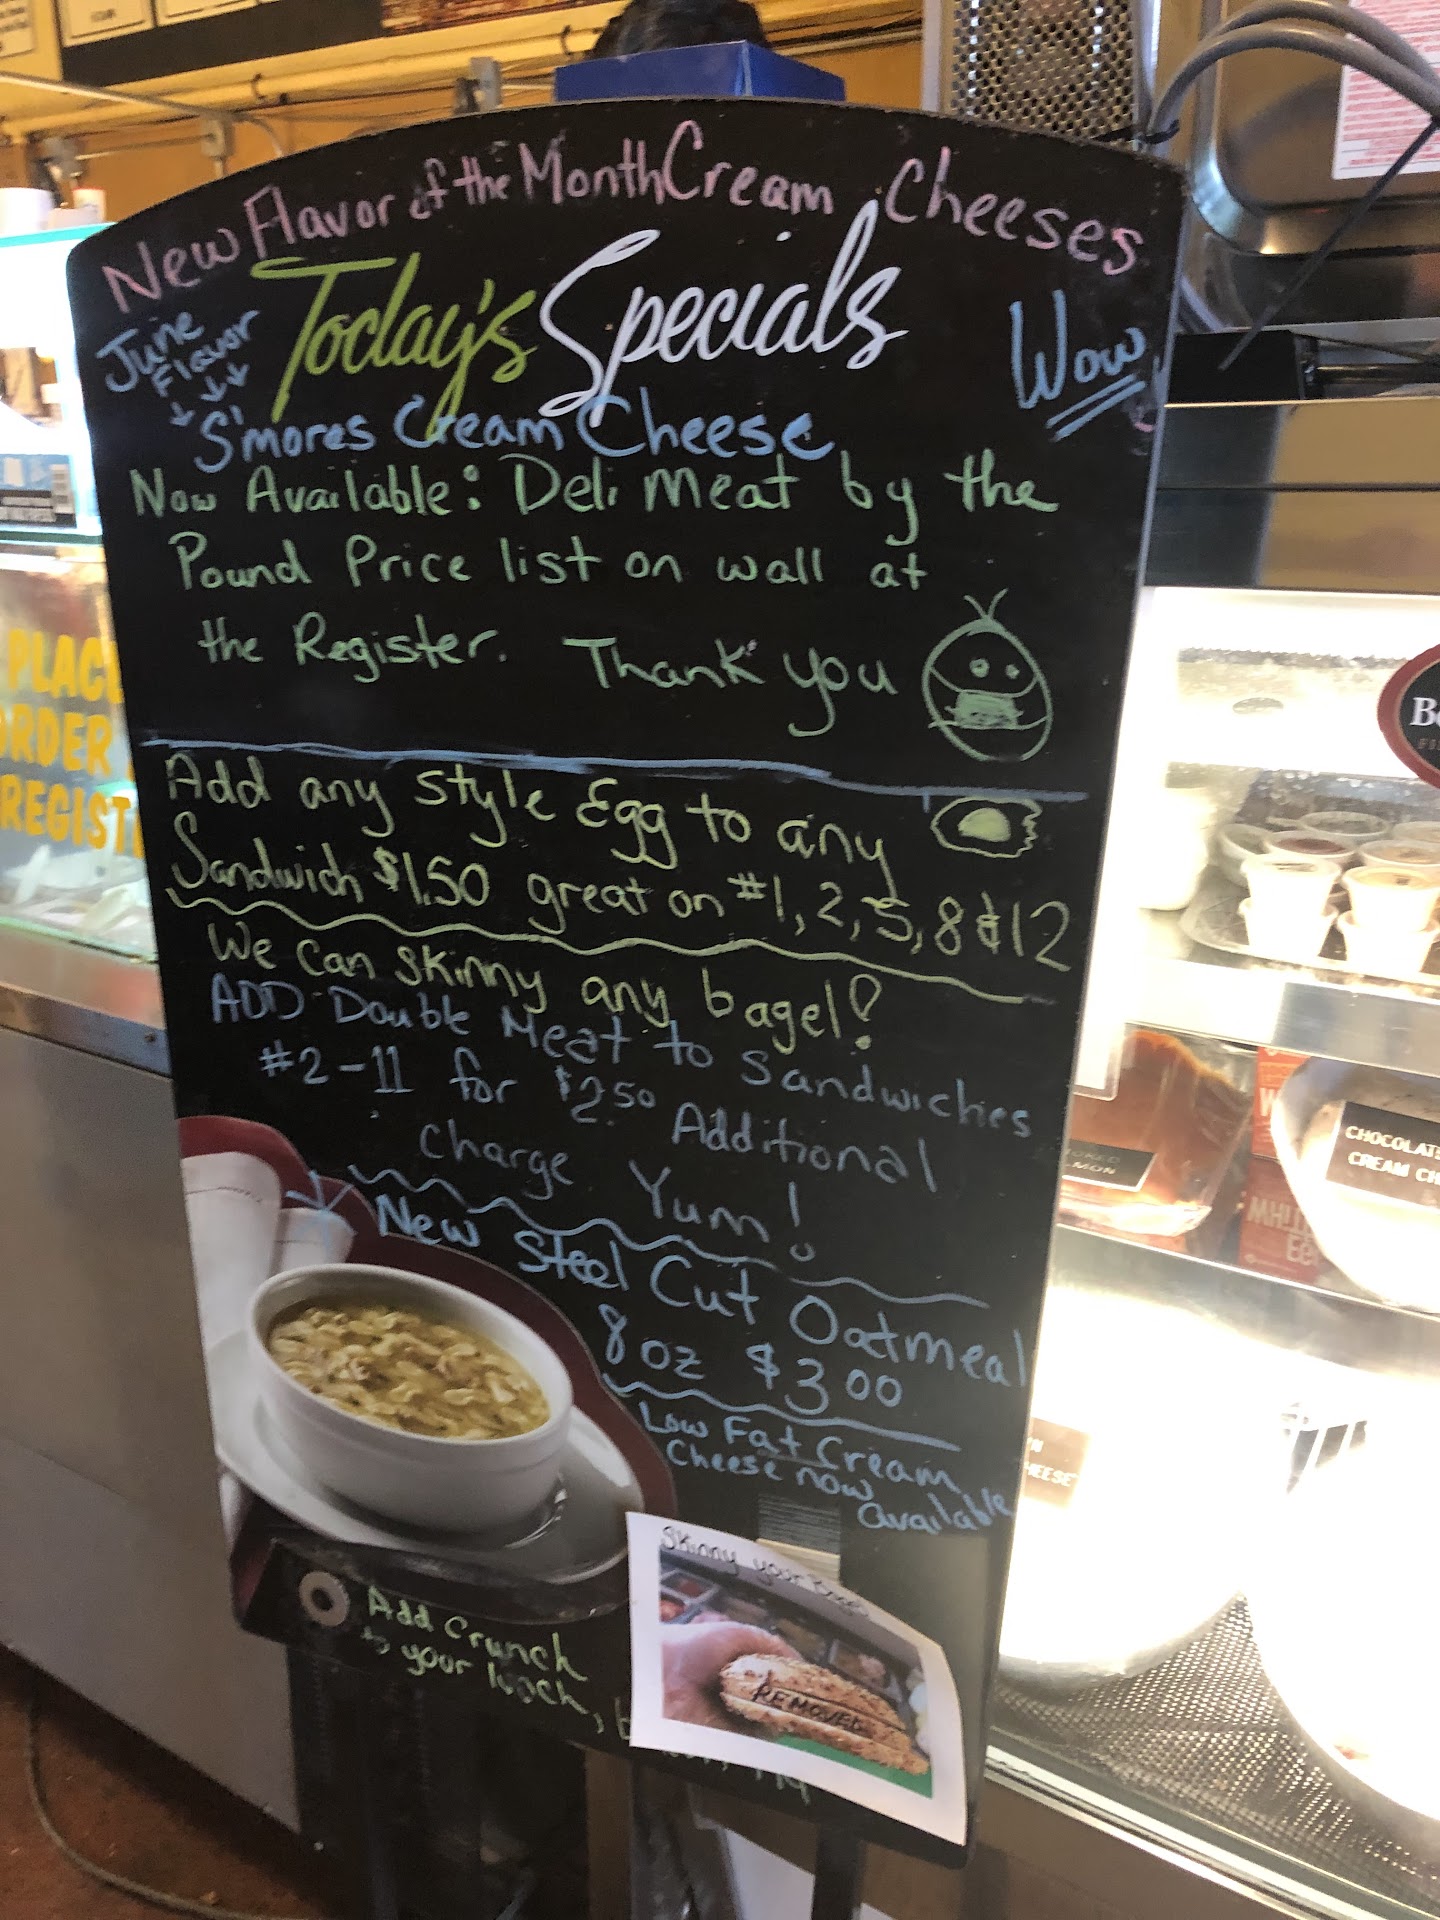 New Flavor of the Month Cream Cheeses
Today's Specials
June
Flavor
Wow
S'mores Cream Cheese
Now Available: Deli Meat by the
Pound Price list on wall at
the Register. Thank you
Add any style Egg to any
Sandwich $1.50 great on #1, 2, 5, 8 & 12
We can skinny any bagel!
ADD Double Meat to Sandwiches
#2-11 for $2.50 Additional
charge Yum!
New Steel Cut Oatmeal
8 oz $3.00
Low Fat Cream
Cheese now
available
Add crunch
to your
Skinny your
REMOVED
PLACE
ORDER
REGIST
CHOCOLAT
CREAM CH
HEESE